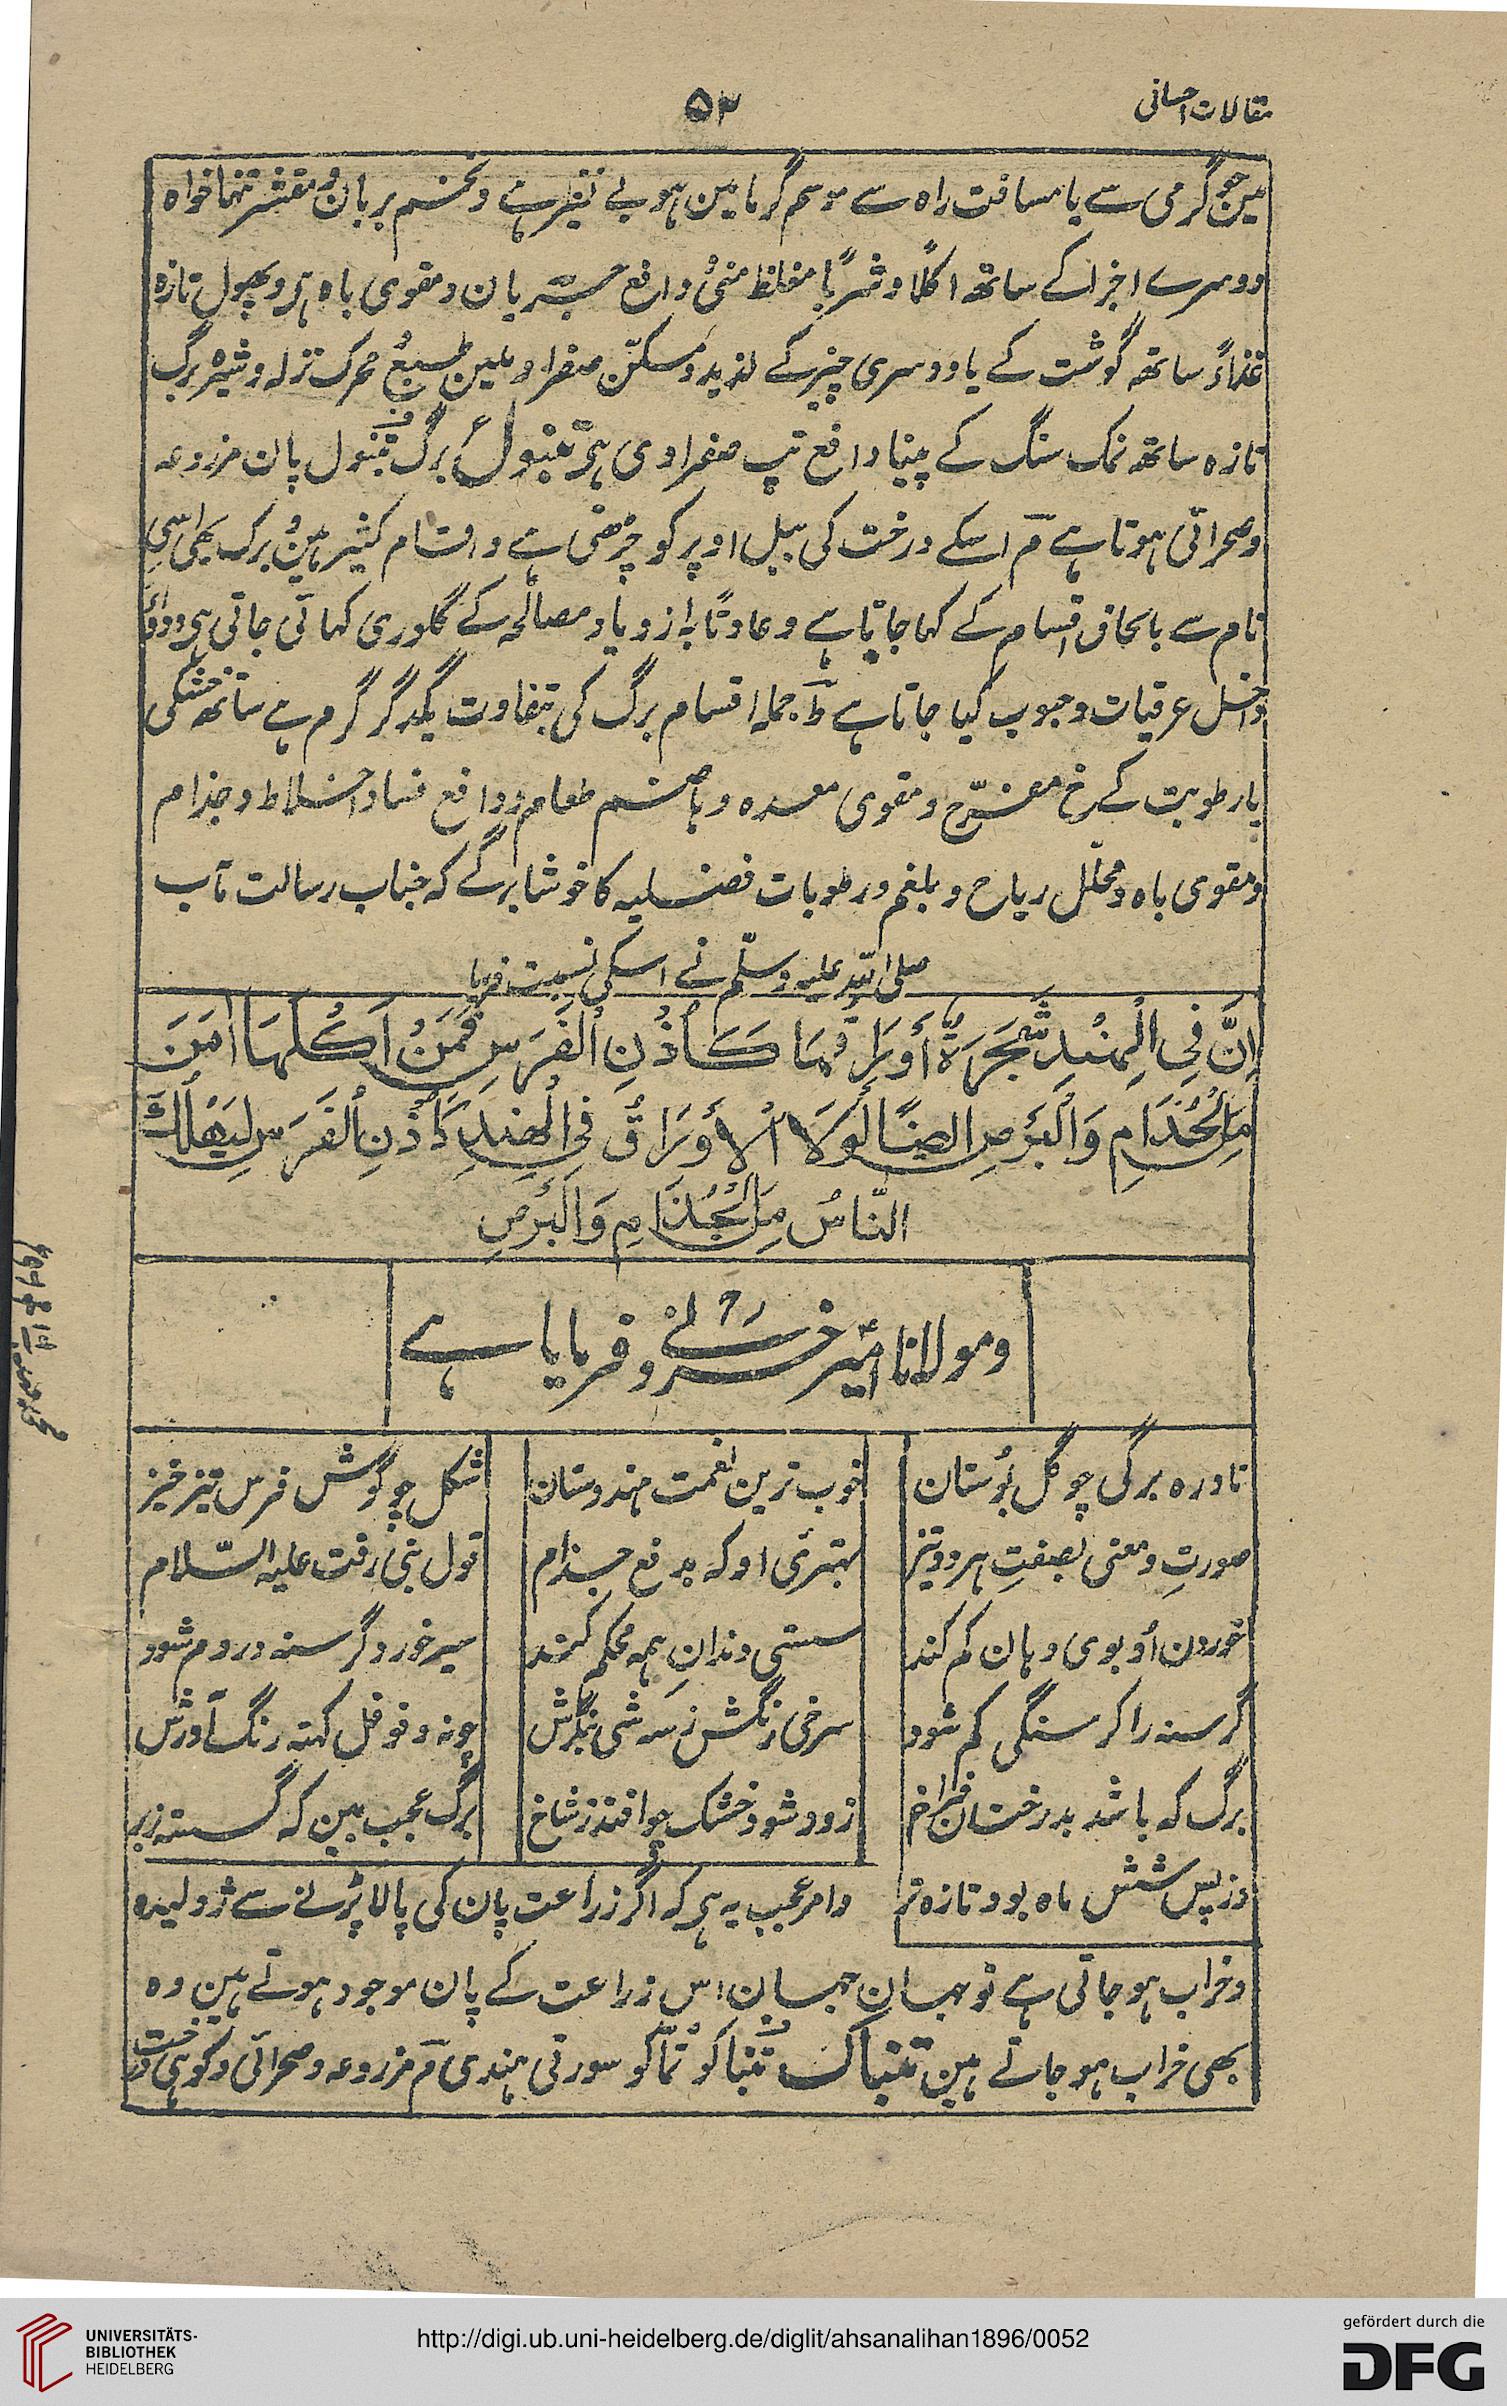 مقالات احسانی
۵۳
مین جو گرمی سے یا مسافت راہ سے موسم گرما مین ہو بے نظیر ہے و تخم بریان و مقشر تنہا خواہ
دوسرے اجزا کے ساتھ اکلاً و شرباً مغلظ منیٔ و دافع جریان و مقوی باہ ہی و پھول تازہ
غذاءً ساتھ گوشت کے یا دوسری چیز کے لذیذ و مسکّن صفرا و ملین طبیع محرک نزلہ و شیرہ برگ
تازہ ساتھ نمک سنگ کے پینا دافع تپ صفراوی ہی تنبول برگ تنبول پان مزروعہ
و صحرائی ہوتا ہے م اسکے درخت کی بیل اوپر کو چڑھتی ہے و اقسام کثیر ہین و برگ بھی اسی
نام سے بالحاق اقسام کے کہا جاتا ہے و عادتًا بہ ازدیاد مصالحہ کے گلوری کہائی جاتی ہی و دواءً
داخل عرقیات و حبوب کیا جاتا ہے ط جملہ اقسام برگ کی بتفاوت یکدگر گرم ہے ساتھ خشکی
یا رطوبت کے خ مفرّح و مقوی معدہ و ہاضم طعام و دافع فساد اخلاط و جذام
و مقوی باہ و محلّل ریاح و بلغم و رطوبات فضلیہ کا خوشا برگے کہ جناب رسالت مآب
صلی اللہ علیہ وسلّم نے اسکی نسبت فرمایا
اِنَّ فِي الْهِنْدِ شَجَرَةٌ أَوْرَاقُهَا كَأُذُنِ الْفَرَسِ فَمَنْ اَكَلَهَا اَمِنَ
مِنَ الْجُذَامِ وَالْبَرَصِ ايضًا لَوْلَا الْاَوْرَاقُ فِي الْهِنْدِ كَأُذُنِ الْفَرَسِ لَيَهْلَكَ
النَّاسُ مِنَ الْجُذَامِ وَالْبَرَصِ
و مولانا امیر خسرو نے فرمایا ہے
نادرہ برگی چو گل بُوستان خوب ترین نعمت ہندوستان شکل چو گوش فرس تیز خیز
صورتِ و معنی بصفتِ ہر دو تیز بہتری او کہ بدفع جذام قول نبی رفت علیہ السّلام
خوردن اُو بوی دہان کم کند سستی دندانِ ہمہ محکم کند سیر خورد گرسنہ در دم شود
گرسنہ را گرسنگی کم شود سرخی رنگش ز سہ شی بنگرش چونہ و فوفل کتہ رنگ آورش
برگ کہ باشد بدرختان فراخ زود شود خشک چو افتد ز شاخ برگ عجب بین کہ گسستہ زبر
وز پس شش ماہ بود تازہ تر و امر عجب یہ ہی کہ اگر زراعت پان کی پالا پڑنے سے ژولیدہ
و خراب ہو جاتی ہے تو جہان جہان اس زراعت کے پان موجود ہوتے ہین وہ
بھی خراب ہو جاتے ہین تنباک تنباکو تماکو سورتی ہندی م مزروعہ و صحرائی و کوہی درخت
UNIVERSITÄTS-
BIBLIOTHEK
HEIDELBERG
http://digi.ub.uni-heidelberg.de/diglit/ahsanalihan1896/0052
gefördert durch die
DFG